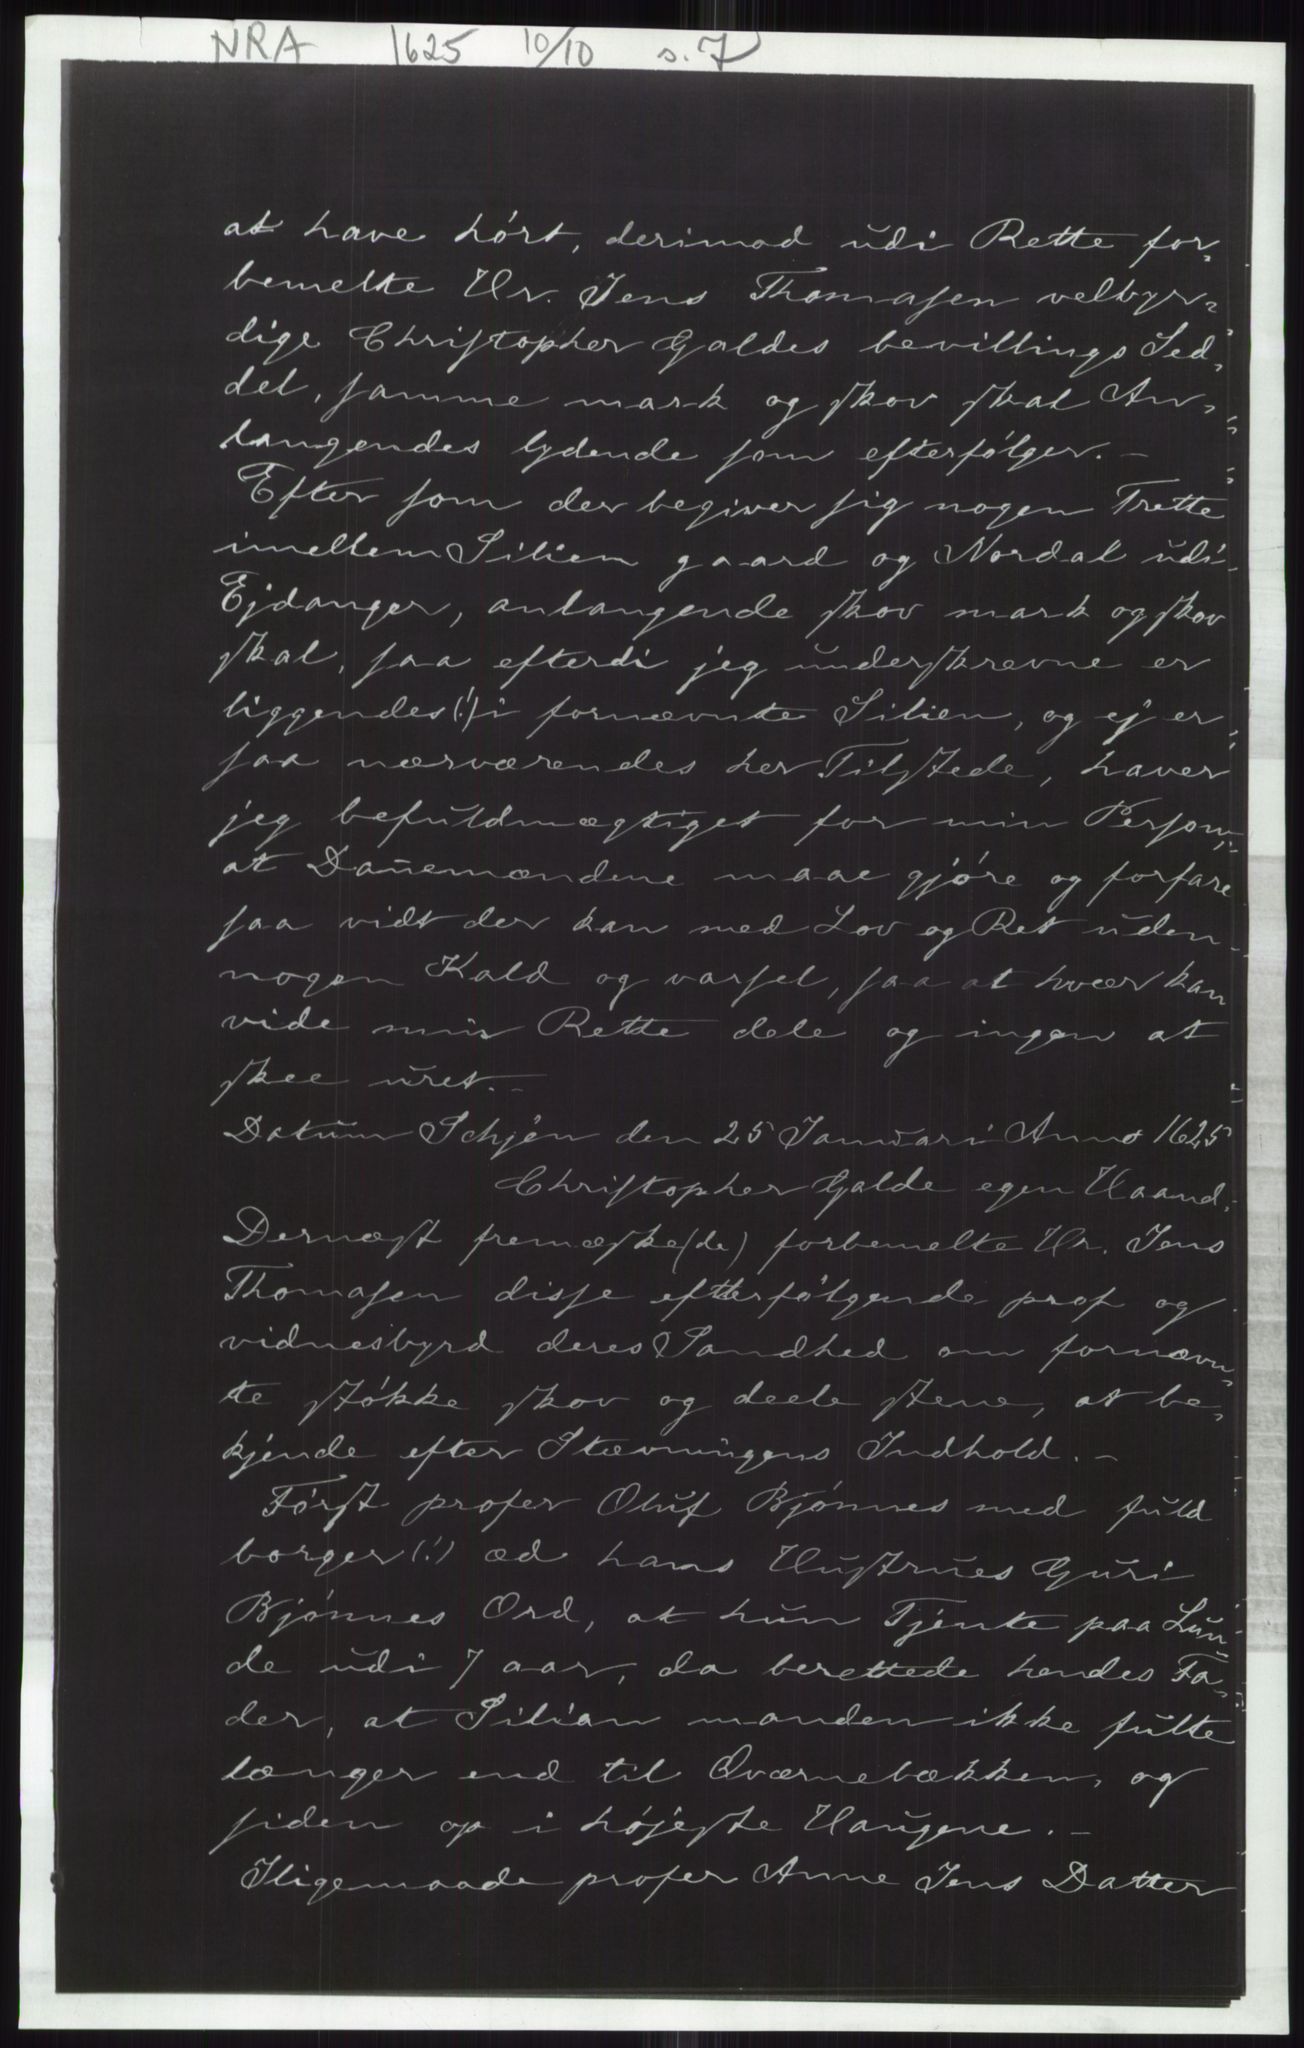 NRA 1625 10/10 s. 7
at have hórt, derimod udi Rette for-
bemelte Hr. Jens Thomasen velbyr-
dige Christopher Galdes bevillings Sed-
del, samme mark og skov skal An-
langendes lydende som efterfólger. -
Efter som der begiver sig nogen Trette
imellem Silien gaard og Nordal udi
Ejdanger, anlangende skov mark og skov
skal, saa efterdi jeg underskrevne er
liggendes (!) i fornævnte Silien, og ej er
saa nærværendes her Tilstede, haver
jeg befuldmægtiget for min Person,
at Danemændene maae gjóre og forfare
saa vidt der kan med Lov og Ret uden
nogen Kald og varsel, saa at hvær kan
vide min Rette dele og ingen at
skee uret. -
Datum Schjén den 25 Januari Anno 1625
Christopher Galde egen Haand.
Dernæst fremæske(de) forbemelte Hr. Jens
Thomasen disse efterfólgende prof og
vidnesbyrd deres Sandhed om fornævn-
te stókke skov og deele stene, at be-
kjende efter Stævningens Indhold. -
Fórst profer Oluf Bjónnes med fuld
borger (!) æd hans Hustrues Guri
Bjónnes Ord, at hun Tjente paa Lun-
de udi 7 aar, da berettede hendes Fa-
der, at Silian manden ikke fulte
længer end til Qværnebækken, og
siden op i hójeste Haugene. -
Iligemaade profer Anne Jens Datter